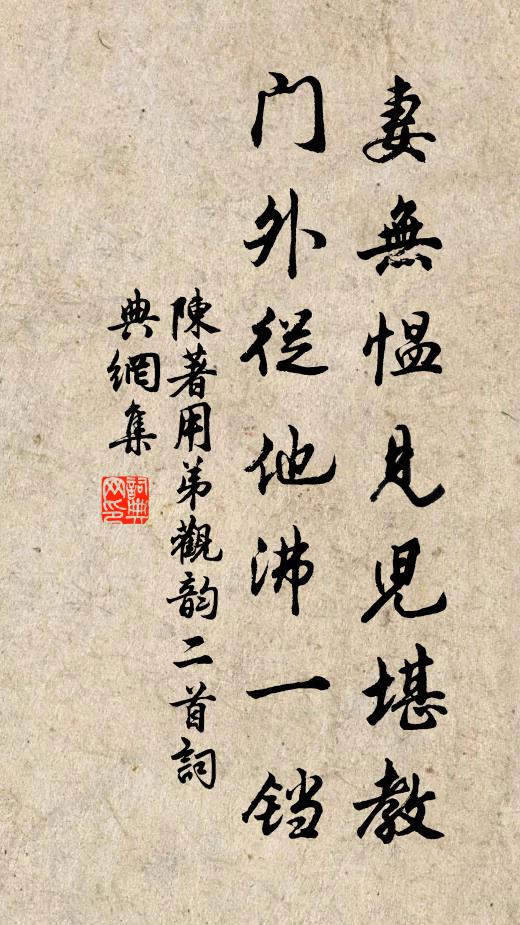 妻無愠見児堪教
門外従他沸一铛
陳著用弟觀韵二首詞
典網集
詞典
网印